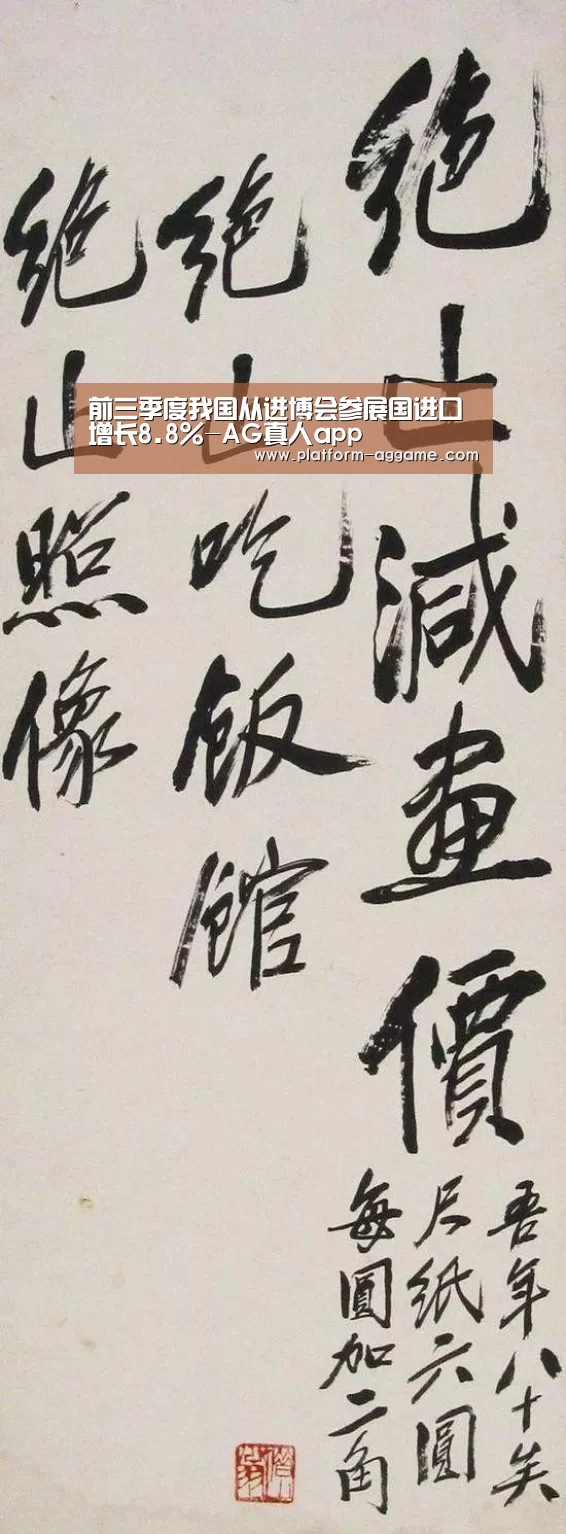 绝止减畫價
吾年八十矣
尺纸六圓
每圓加二角
绝止吃飯館
绝止照像
前三季度我国从进博会参展国进口
增长8.8%-AG真人app
www.platform-aggame.com